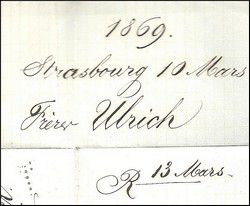 1869.
Strasbourg 10 Mars
Frères Ulrich
R 13 Mars.